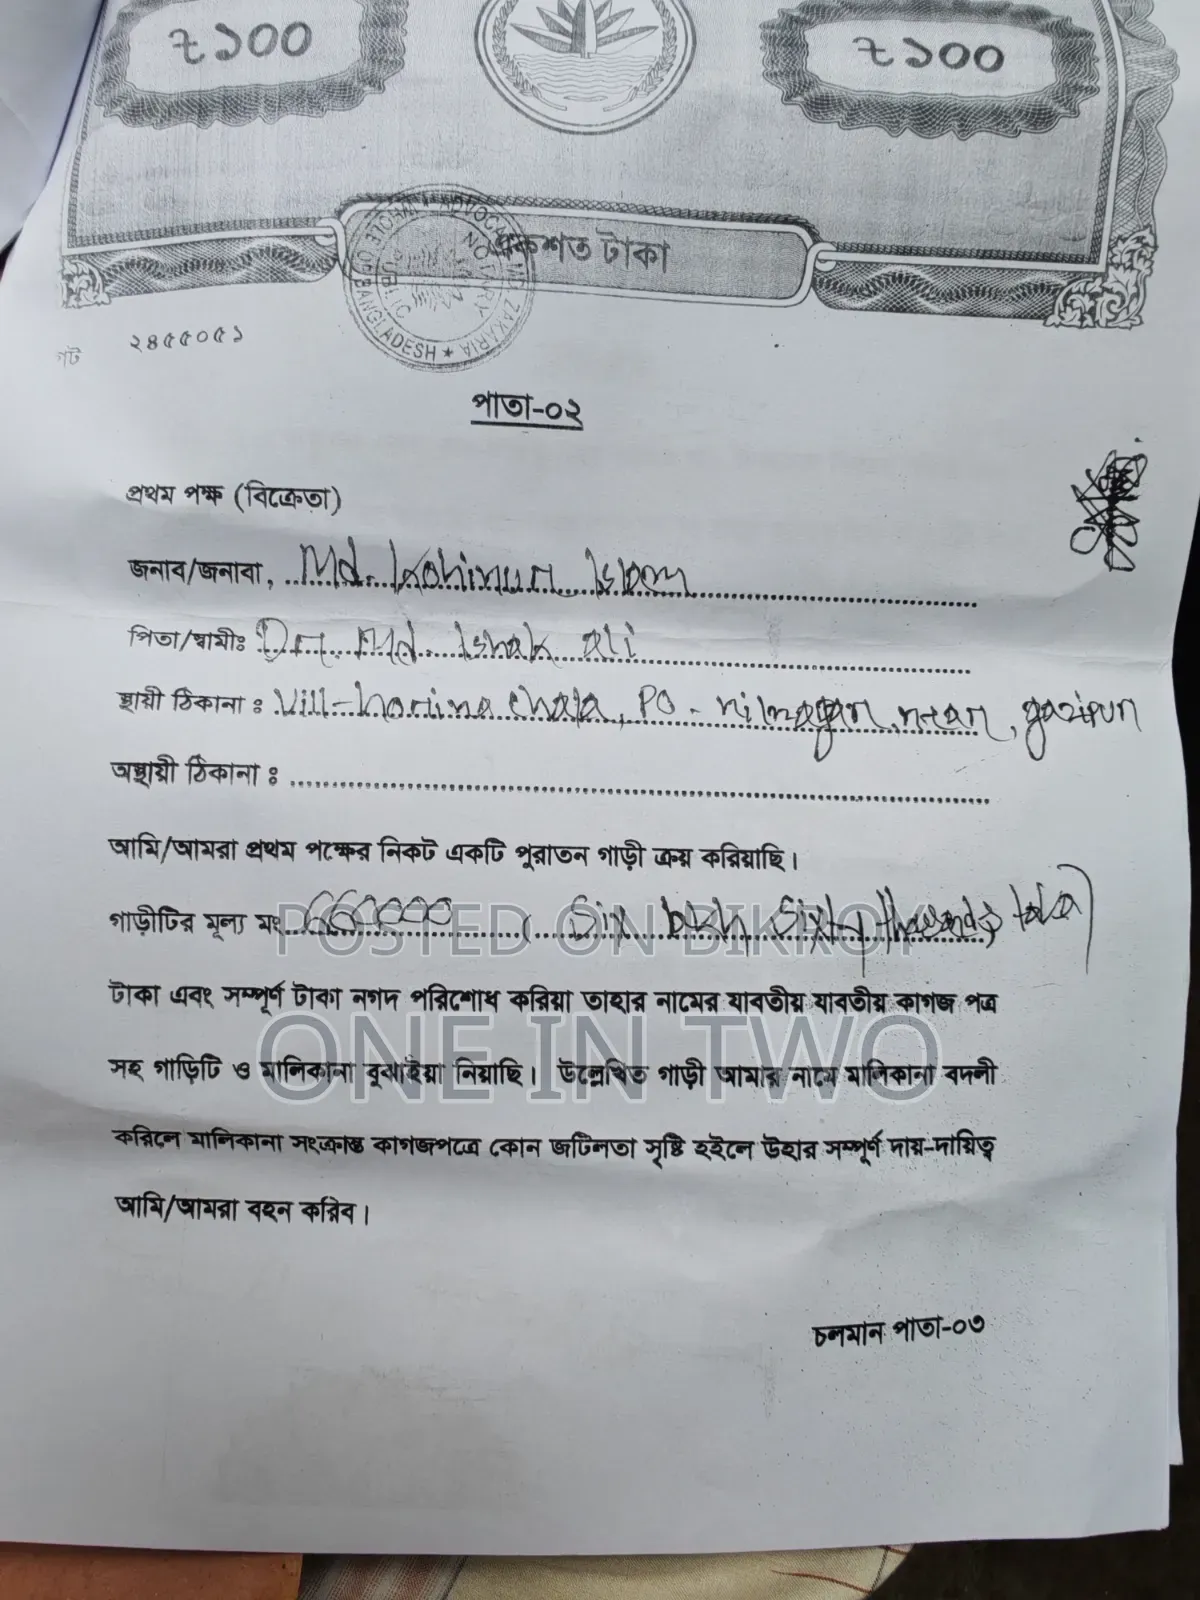 ৳১০০ ৳১০০
একশত টাকা
ADVOCATE MD. ZAKARIA ★ WHOLE OF BANGLADESH ★
NOTARY PUBLIC
গট ২৪৫৫০৫১
পাতা-০২
প্রথম পক্ষ (বিক্রেতা)
জনাব/জনাবা, Md. Kohinur Islam
পিতা/স্বামীঃ Dr. Md. Ishak ali
স্থায়ী ঠিকানা : Vill-horina chala, PO - nilnagar, gazipur
অস্থায়ী ঠিকানা :
আমি/আমরা প্রথম পক্ষের নিকট একটি পুরাতন গাড়ী ক্রয় করিয়াছি।
গাড়ীটির মূল্য মং 660000 ( Six lakh Sixty thousands taka)
POSTED ON BIKROY
টাকা এবং সম্পূর্ণ টাকা নগদ পরিশোধ করিয়া তাহার নামের যাবতীয় যাবতীয় কাগজ পত্র
ONE IN TWO
সহ গাড়িটি ও মালিকানা বুঝাইয়া নিয়াছি। উল্লেখিত গাড়ী আমার নামে মালিকানা বদলী
করিলে মালিকানা সংক্রান্ত কাগজপত্রে কোন জটিলতা সৃষ্টি হইলে উহার সম্পূর্ণ দায়-দায়িত্ব
আমি/আমরা বহন করিব।
চলমান পাতা-০৩